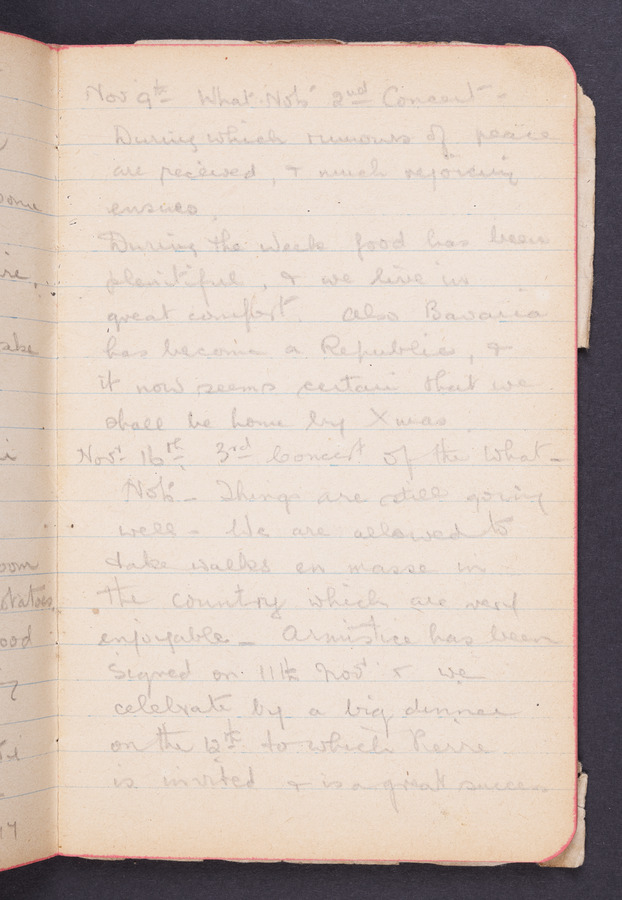 ome
re,
ake
i
oom
otatoes,
ood
Nov 9th What-Nots' 2nd Concert -
During which rumours of peace
are received, & much rejoicing
ensues.
During the week food has been
plentiful, & we live in
great comfort. Also Bavaria
has become a Republic, &
it now seems certain that we
shall be home by Xmas.
Nov: 16th 3rd Concert of the What-
Nots. - Things are still going
well - We are allowed to
take walks en masse in
the country which are very
enjoyable - Armistice has been
signed on 11th Nov & we
celebrate by a big dinner
on the 12th to which Pierre
is invited & is a great success